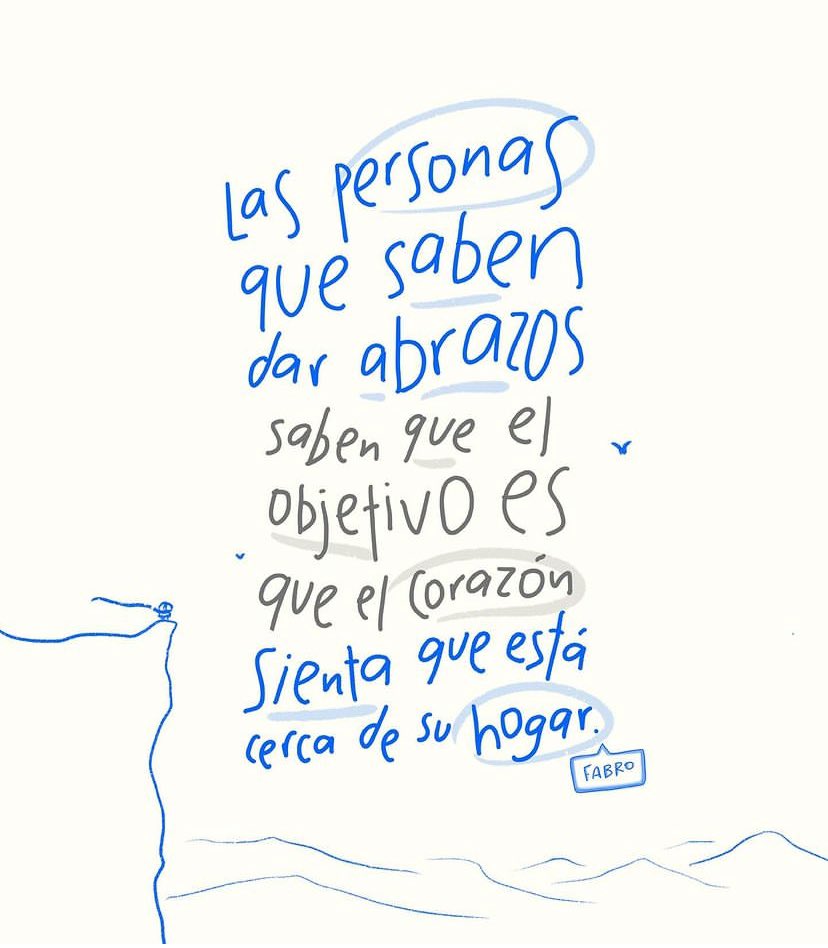 Las personas
que saben
dar abrazos
saben que el
objetivo es
que el corazón
Sienta que está
cerca de su hogar.
FABRO